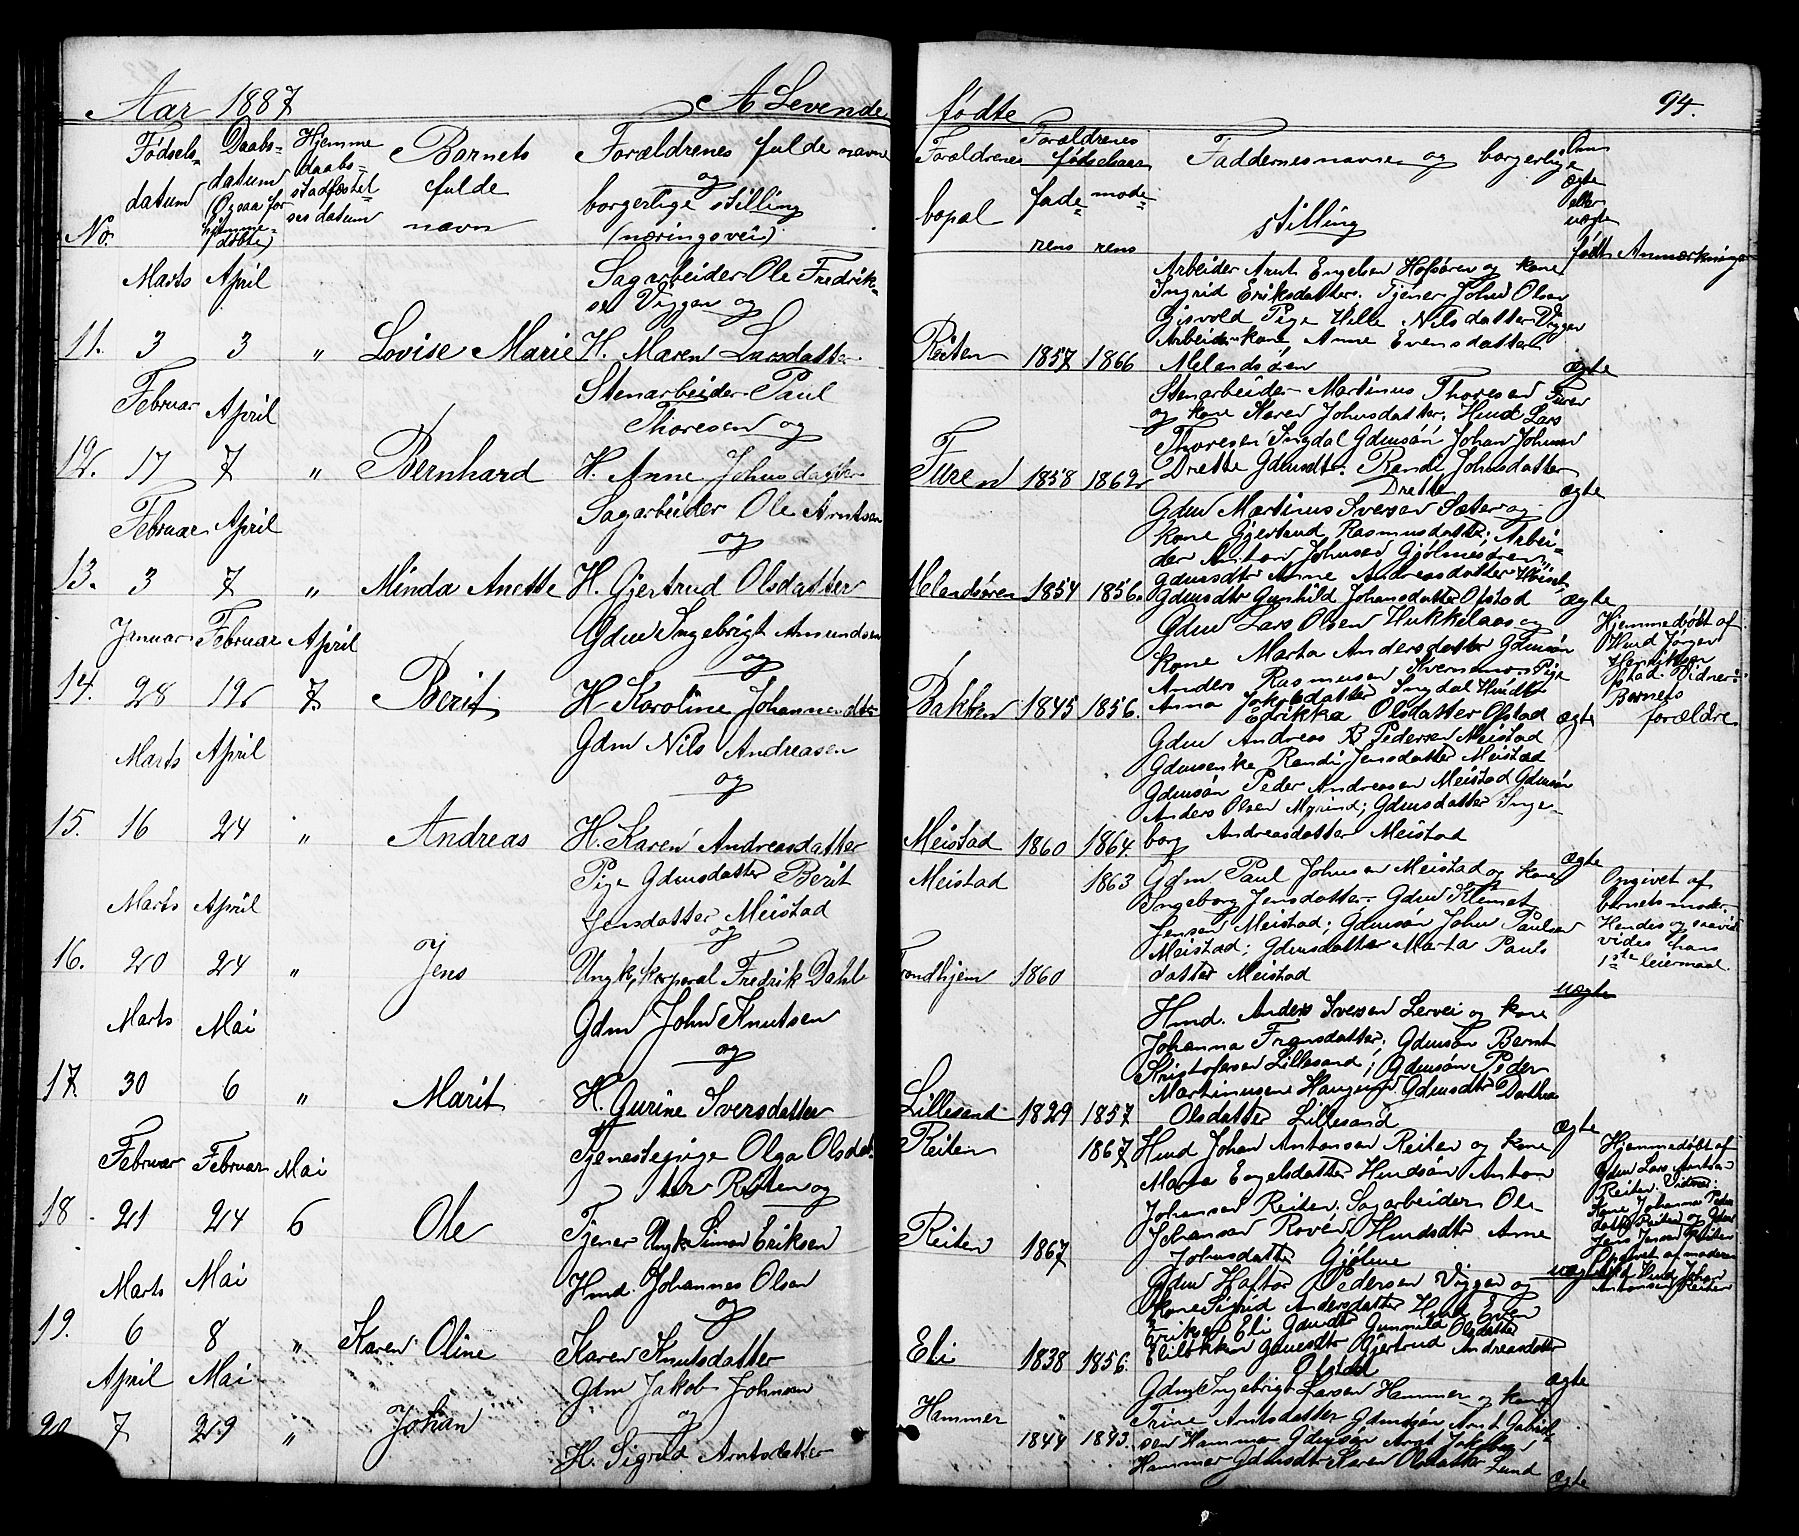 Aar 1887 A Levende
No.
Fødsels-
datum
Daabs-
datum
(Ogsaa for
hjemme-
døbte)
Hjemme
daabs-
stadfæstel
ses datum
Barnets
fulde
navn
Forældrenes fulde navne
og
borgerlige stilling
(næringsvei)
Marts April Sagarbeider Ole Fredrik-
sen Viggen og
11. 3 3 " Lovise Marie H. Maren Larsdatter
Februar April Stenarbeider Paul
Thoresen og
12. 17 7 " Bernhard H. Anne Johnsdatter
Februar April Sagarbeider Ole Arntsen
og
13. 3 7 " Minda Anette H. Gjertrud Olsdatter
Januar Februar April Gdm Ingebrigt Amundsen
og
14. 28 12 7. Berit H. Karoline Johannesdtr
Marts April Gdm Nils Andreasen
og
15. 16 24 " Andreas H. Karen Andreasdatter
Marts April Pige Gdmsdatter Berit
Jensdatter Meistad
og
16. 20 24 " Jens Ungk, korporal Fredrik Dahl
Marts Mai Gdm John Knutsen
og
17. 30 6 " Marit H. Gurine Iversdatter
Februar Februar Mai Tjenestepige Olga Olsdat-
ter Reiten og
18. 21 24 6 Ole Tjener Ungk Simon Eriksen
Marts Mai Hmd. Johannes Olsen
og
19. 6 8 " Karen Oline Karen Knutsdatter
April Mai Gdm Jakob Johnsen
og
20. 7 29 " Johan H. Sigrid Arntsdatter
fødte 94.
Forældrenes
bopæl
Forældrenes
fødselsaar
fade-
rens
mode-
rens
Faddernes navne og borgerlige
stilling
Om
ægte
eller
uægte
født
Anmærkninger
Arbeider Arnt Engelsen Hofsøren og kone
Ingrid Eriksdatter. Tjener John Olsen
Gjsvold Pige Hille Nilsdatter Viggen
Arbeiderkone Anne Evensdatter
Reiten 1857 1866 Melandsøen ægte
Stenarbeider Martinus Thoresen Furen
og kone Karen Johnsdatter. Hmd Lars
Thoresen Ingdal Gdmsøn Johan Johnsen
Furen 1858 1862 Drette Gdmsdtr. Randi Johnsdatter
Drette ægte
Gdm Martinus Iversen Sæter og
kone Gjertrud Rasmusdatter; Arbei-
der Anton Johnsen Gjølmesøren
Gdmsdtr Anne Andreasdatter
Melandsøren 1854 1856. Gdmsdtr Gunhild Johansdatter Ofstad ægte
Gdm Lars Olsen Hukkelaas og
kone Marta Andersdatter Gdmsøn
Anders Rasmusen Kvernmo. Pige
Anna Jakobsdatter Ingdal Hmdsdtr
Bakken 1845 1856. Edrikka Olsdatter Ofstad ægte
Hjemmedøbt af
Hmd Jørgen
Henriksen
Ofstad. Vidner:
Barnets
forældre
Gdm Andreas B Pedersen Meistad
Gdmsenke Randi Jensdatter Meistad
Gdmsøn Peder Andreasen Meistad Gdmsøn
Anders Olsen Myrind; Gdmsdatter Inge-
Meistad 1860 1864. borg Andreasdatter Meistad ægte
Meistad 1863 Gdm Paul Johnsen Meistad og kone
Ingeborg Jensdatter. Gdm Klemet
Jensen Meistad; Gdmsøn John Paulsen
Meistad; Gdmsdatter Marta Pauls
Trondhjem 1860 datter Meistad
uægte
Opgivet af
barnets moder.
Hendes og saavid
vides hans
1ste leiermaal.
Hmd. Anders Iversen Lervei og kone
Johanna Fransdatter; Gdmsøn Bernt
Kristofersen Lillesand; Gdmsøn Peder
Martinusen Haugen; Gdmsdtr Dorthea
Lillesand 1829 1857 Olsdatter Lillesand ægte
Reiten 1867 Hmd Johan Antonsen Reiten og kone
Marta Engelsdatter Hmdsøn Anton
Johansen Reiten. Sagarbeider Ole
Johansen Rovèn Hmdsdtr Anne
Reiten 1867 Johnsdatter Gjølme
uægte
Hjemmedøbt af
Gdm Lars Arntsen
Reiten. Vidner:
Kone Johanna Peders
datter Reiten og Gdm
Jens Jensen Reiten
Opgivet af moderen
Hmd Johan
Antonsen Reiten
Gdm Haftor Pedersen Viggen og
kone Sigrid Andersdatter Hmd Even
Eriksen Eli Gdmdtr Gunnild Olsdatter
Eli 1838 1856. Elibakken Gdmsdtr Gjertrud Andreasdatter
Ofstad ægte
Hammer 1844 1843. Gdm Ingebrigt Larsen Hammer og kone
Trine Arntsdatter Gdmsøn Arnt Gabriel-
sen Hammer Gdmsøn Arnt Jakobsen
Hammer Gdmsdtr Karen Olsdatter Lund
ægte